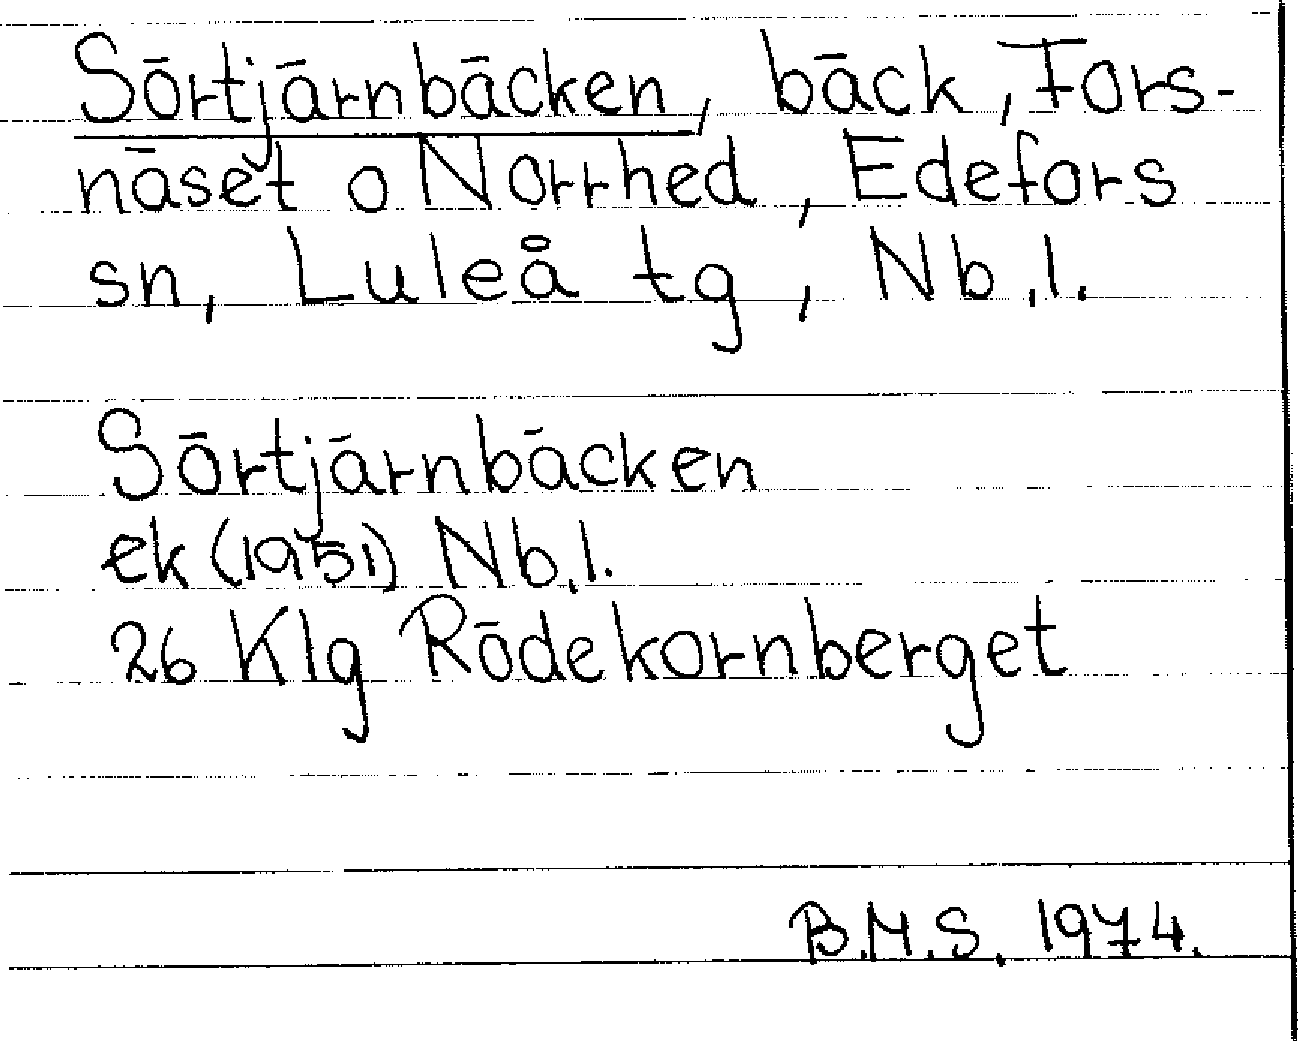 Sörtjärnbäcken, bäck, Fors-
näset o Norrhed, Edefors
sn, Luleå tg, Nb.l.
Sörtjärnbäcken
ek (1951) Nb.l.
26 Klg Rödekornberget
B.M.S. 1974.